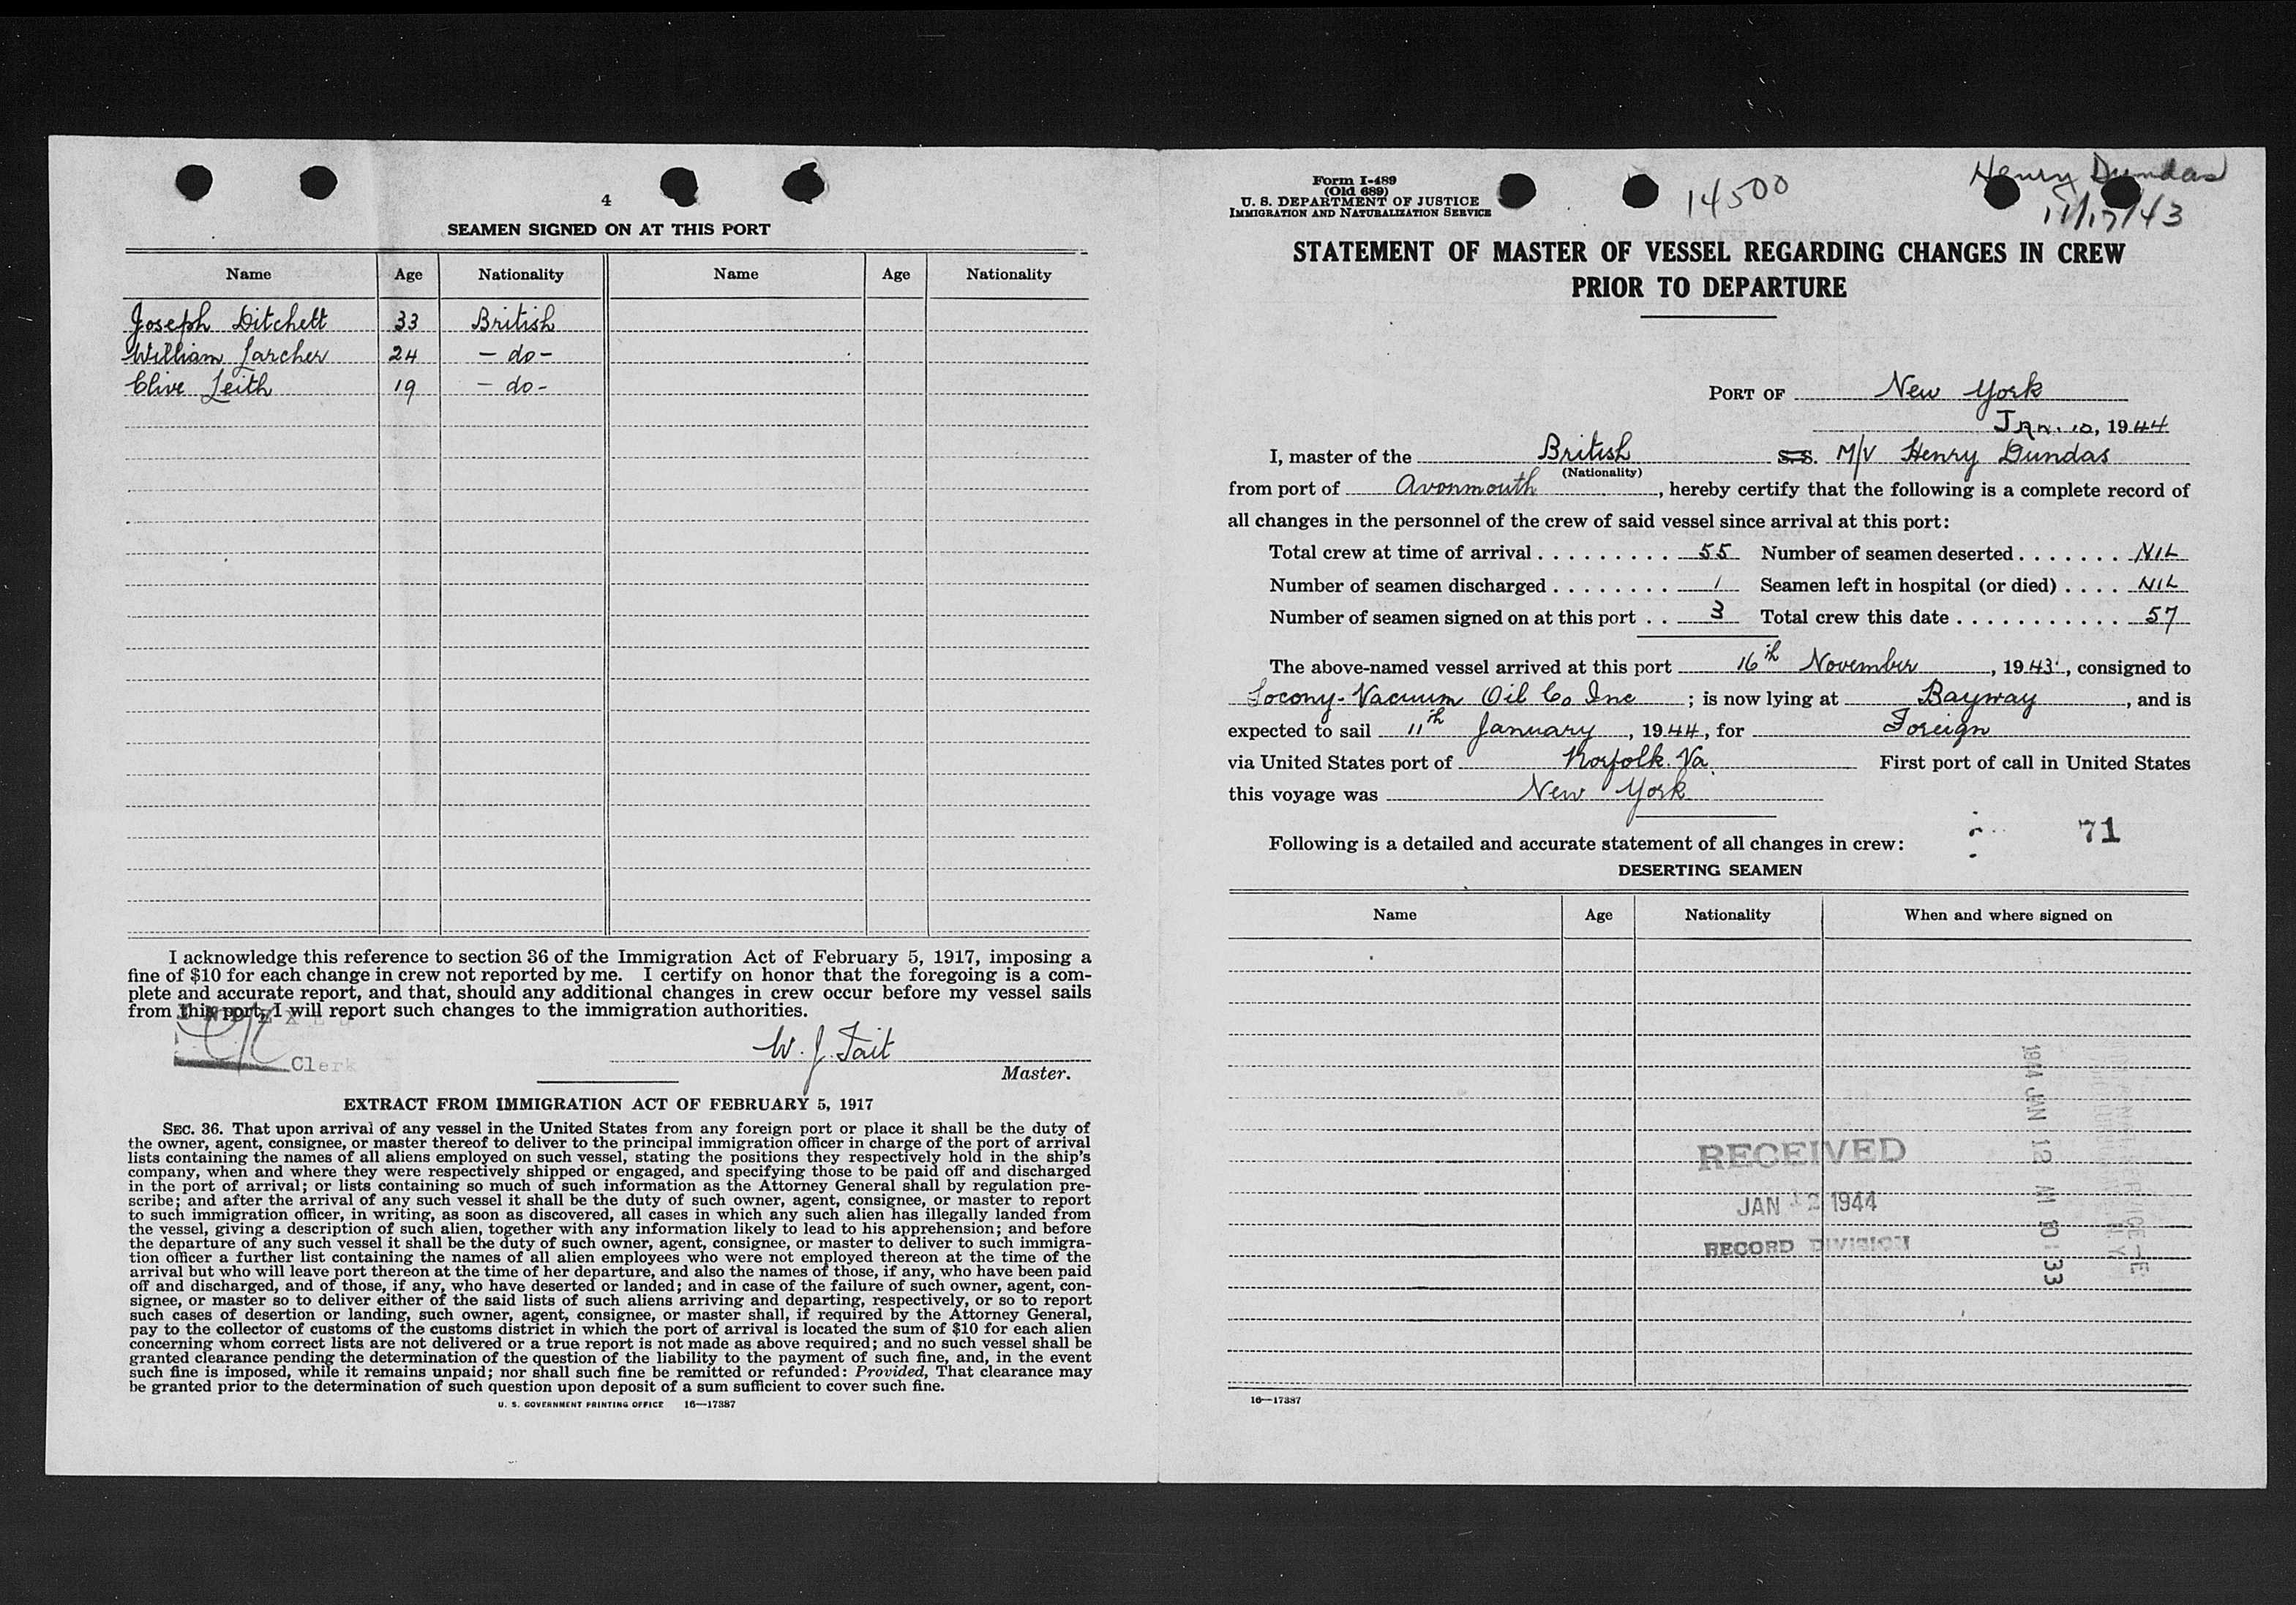 4
SEAMEN SIGNED ON AT THIS PORT
Name Age Nationality Name Age Nationality
Joseph Ditchett 33 British
William Larcher 24 - do -
Clive Leith 19 - do -
I acknowledge this reference to section 36 of the Immigration Act of February 5, 1917, imposing a
fine of $10 for each change in crew not reported by me. I certify on honor that the foregoing is a com-
plete and accurate report, and that, should any additional changes in crew occur before my vessel sails
from this port, I will report such changes to the immigration authorities.
Clerk
W. J. Tait
Master.
EXTRACT FROM IMMIGRATION ACT OF FEBRUARY 5, 1917
SEC. 36. That upon arrival of any vessel in the United States from any foreign port or place it shall be the duty of
the owner, agent, consignee, or master thereof to deliver to the principal immigration officer in charge of the port of arrival
lists containing the names of all aliens employed on such vessel, stating the positions they respectively hold in the ship's
company, when and where they were respectively shipped or engaged, and specifying those to be paid off and discharged
in the port of arrival; or lists containing so much of such information as the Attorney General shall by regulation pre-
scribe; and after the arrival of any such vessel it shall be the duty of such owner, agent, consignee, or master to report
to such immigration officer, in writing, as soon as discovered, all cases in which any such alien has illegally landed from
the vessel, giving a description of such alien, together with any information likely to lead to his apprehension; and before
the departure of any such vessel it shall be the duty of such owner, agent, consignee, or master to deliver to such immigra-
tion officer a further list containing the names of all alien employees who were not employed thereon at the time of the
arrival but who will leave port thereon at the time of her departure, and also the names of those, if any, who have been paid
off and discharged, and of those, if any, who have deserted or landed; and in case of the failure of such owner, agent, con-
signee, or master so to deliver either of the said lists of such aliens arriving and departing, respectively, or so to report
such cases of desertion or landing, such owner, agent, consignee, or master shall, if required by the Attorney General,
pay to the collector of customs of the customs district in which the port of arrival is located the sum of $10 for each alien
concerning whom correct lists are not delivered or a true report is not made as above required; and no such vessel shall be
granted clearance pending the determination of the question of the liability to the payment of such fine, and, in the event
such fine is imposed, while it remains unpaid; nor shall such fine be remitted or refunded: Provided, That clearance may
be granted prior to the determination of such question upon deposit of a sum sufficient to cover such fine.
U. S. GOVERNMENT PRINTING OFFICE 16—17387
Form I-489
(Old 689)
U. S. DEPARTMENT OF JUSTICE
IMMIGRATION AND NATURALIZATION SERVICE
14500
Henry Dundas
11/17/43
STATEMENT OF MASTER OF VESSEL REGARDING CHANGES IN CREW
PRIOR TO DEPARTURE
PORT OF New York
Jan. 10, 1944
I, master of the British S.S. M/V Henry Dundas
(Nationality)
from port of Avonmouth, hereby certify that the following is a complete record of
all changes in the personnel of the crew of said vessel since arrival at this port:
Total crew at time of arrival . . . . . . . . . 55 Number of seamen deserted . . . . . . . NIL
Number of seamen discharged . . . . . . . . 1 Seamen left in hospital (or died) . . . . NIL
Number of seamen signed on at this port . . 3 Total crew this date . . . . . . . . . . . . 57
The above-named vessel arrived at this port 16th November, 1943, consigned to
Socony-Vacuum Oil Co Inc ; is now lying at Bayway, and is
expected to sail 11th January, 1944, for Foreign
via United States port of Norfolk. Va. First port of call in United States
this voyage was New York
71
Following is a detailed and accurate statement of all changes in crew:
DESERTING SEAMEN
Name Age Nationality When and where signed on
RECEIVED
JAN 12 1944
RECORD DIVISION
1944 JAN 12 AM 10:33
16—17387